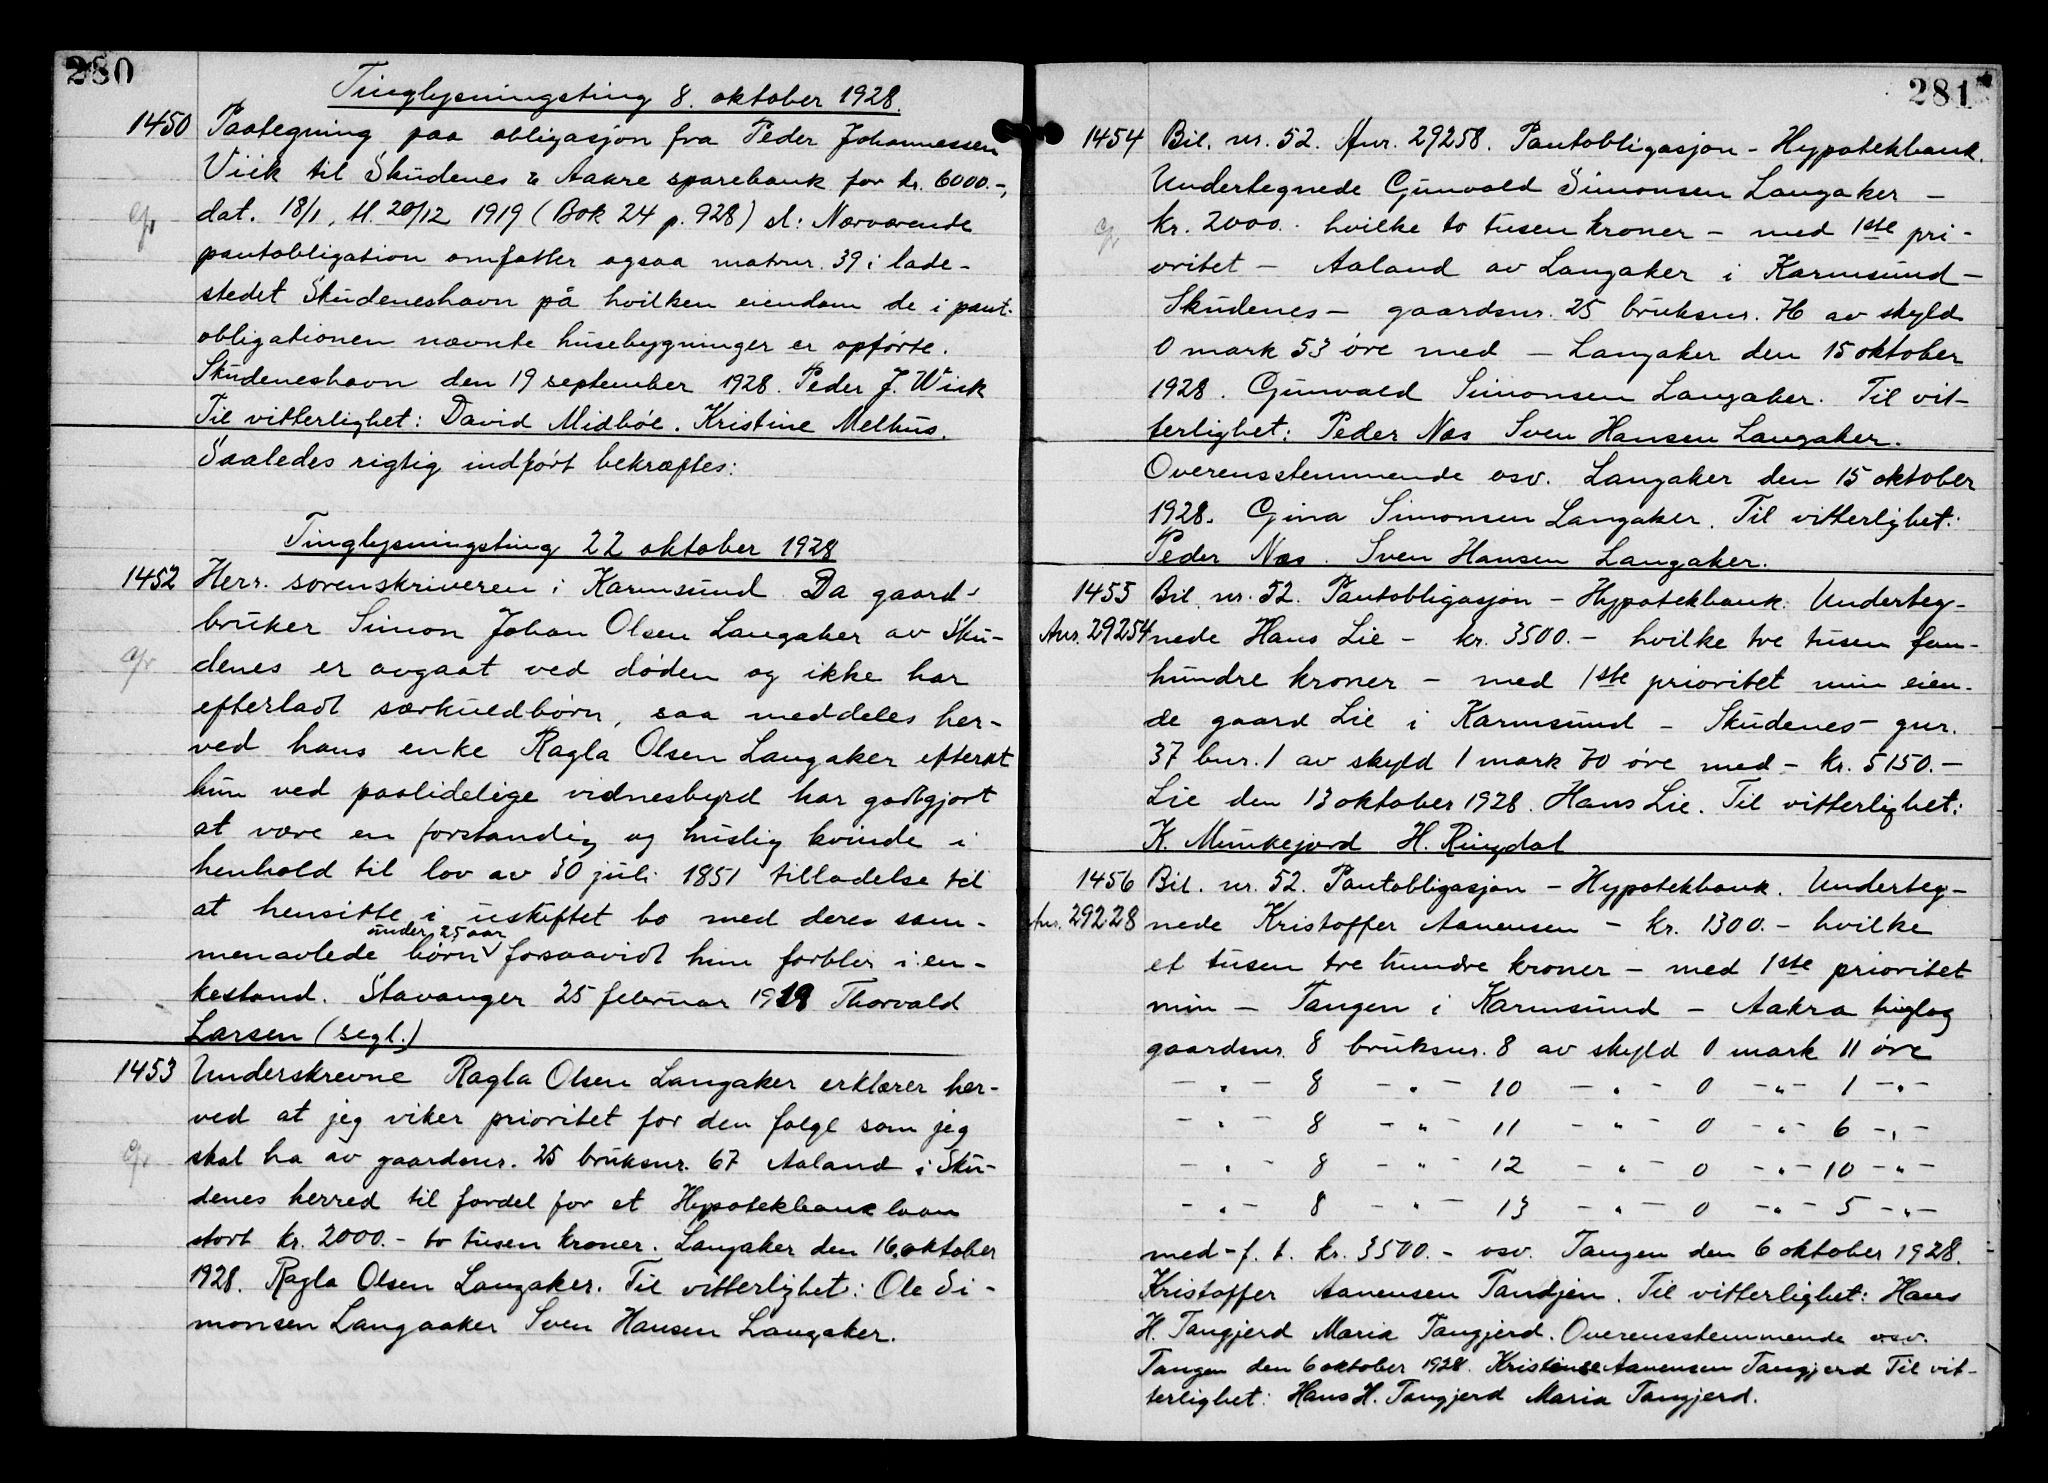 280
Tinglysningsting 8. oktober 1928.
1450 Paategning paa obligasjon fra Peder Johannessen
Viik til Skudenes & Aakre sparebank for kr. 6000.-,
dat. 18/1, tl. 20/12 1919 (Bok 24 p. 928) sl: Nærværende
pantobligation omfatter ogsaa matrnr. 39 i lade-
stedet Skudeneshavn på hvilken eiendom de i pant-
obligationen nævnte husebygninger er opførte.
Skudeneshavn den 19 september 1928. Peder J. Wiik
Til vitterlighet: David Midbøe. Kristine Melhus.
Saaledes rigtig indført bekræftes:
Tinglysningsting 22 oktober 1928
1452 Herr. sorenskriveren i Karmsund. Da gaard-
bruker Simon Johan Olsen Langaker av Sku-
denes er avgaat ved døden og ikke har
efterladt særkuldbørn, saa meddeles her-
ved hans enke Ragla Olsen Langaker efterat
hun ved paalidelige vidnesbyrd har godtgjort
at være en forstandig og huslig kvinde i
henhold til lov av 30 juli 1851 tilladelse til
at hensitte i uskiftet bo med deres sam-
under 25 aar
menavlede børn forsaavidt hun forblir i en-
kestand. Stavanger 25 februar 1919 Thorvald
Larsen (segl.)
1453 Underskrevne Ragla Olsen Langaker erklærer her-
ved at jeg viker prioritet for den følge som jeg
skal ha av gaardsnr. 25 bruksnr. 67 Aaland i Sku-
denes herred til fordel for et Hypotekbank laan
stort kr. 2000.- to tusen kroner. Langaker den 16. oktober
1928. Ragla Olsen Langaker. Til vitterlighet: Ole Si-
monsen Langaaker Sven Hansen Langaker.
281
1454 Bil. nr. 52. Anr. 29258. Pantobligasjon - Hypotekbank.
Undertegnede Gunvald Simonsen Langaker -
kr. 2000.- hvilke to tusen kroner - med 1ste pri-
oritet - Aaland av Langaker i Karmsund -
Skudenes - gaardsnr. 25 bruksnr. 76 av skyld
0 mark 53 øre med - Langaker den 15 oktober
1928. Gunvald Simonsen Langaker. Til vit-
terlighet: Peder Næs Sven Hansen Langaker.
Overensstemmende osv. Langaker den 15 oktober
1928. Gina Simonsen Langaker. Til vitterlighet:
Peder Næs. Sven Hansen Langaker.
1455 Bil. nr. 52. Pantobligasjon - Hypotekbank. Underteg-
Anr. 29254 nede Hans Lie - kr. 3500.- hvilke tre tusen fem-
hundre kroner - med 1ste prioritet min eien-
de gaard Lie i Karmsund - Skudenes - gnr.
37 bnr. 1 av skyld 1 mark 70 øre med - kr. 5150.-
Lie den 13 oktober 1928. Hans Lie. Til vitterlighet:
K. Munkejord H. Ringdal
1456 Bil. nr. 52. Pantobligasjon - Hypotekbank. Underteg-
Anr. 29228 nede Kristoffer Aanensen - kr. 1300.- hvilke
et tusen tre hundre kroner - med 1ste prioritet
min - Tangen i Karmsund - Aakra tinglag
gaardsnr. 8 bruksnr. 8 av skyld 0 mark 11 øre
- " - 8 - " - 10 - " - 0 - " - 1 - " -
- " - 8 - " - 11 - " - 0 - " - 6 - " -
- " - 8 - " - 12 - " - 0 - " - 10 - " -
- " - 8 - " - 13 - " - 0 - " - 5 - " -
med - f. t. kr. 3500.- osv. Tangen den 6 oktober 1928.
Kristoffer Aanensen Tandjen. Til vitterlighet: Hans
H. Tangjerd Maria Tangjerd. Overensstemmende osv.
Tangen den 6 oktober 1928. Kristense Aanensen Tangjerd Til vit-
terlighet: Hans H. Tangjerd Maria Tangjerd.